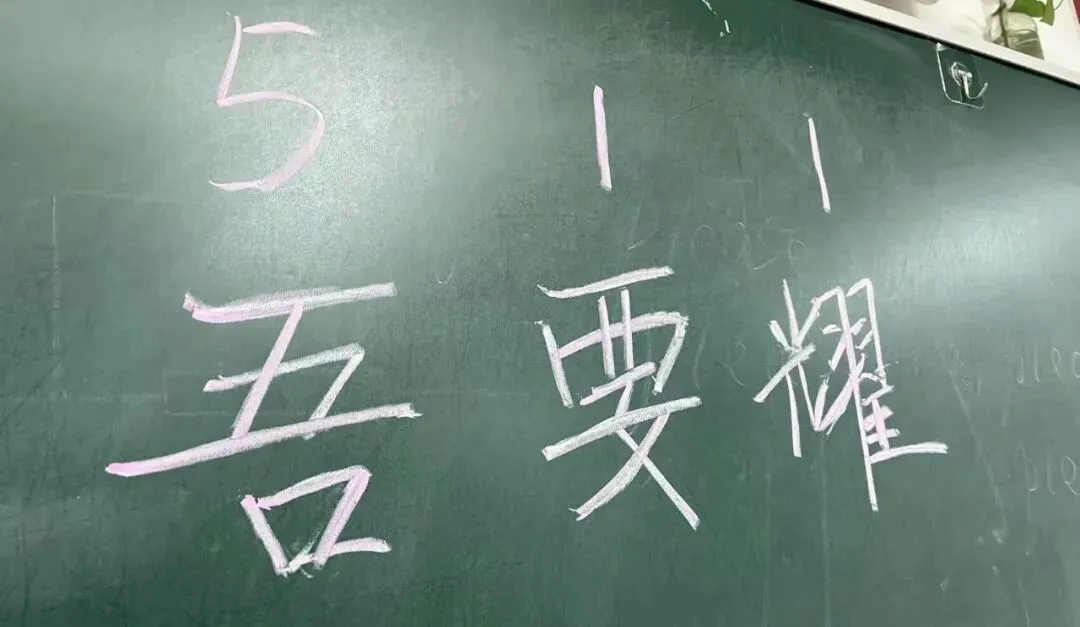 5 1 1
吾要耀